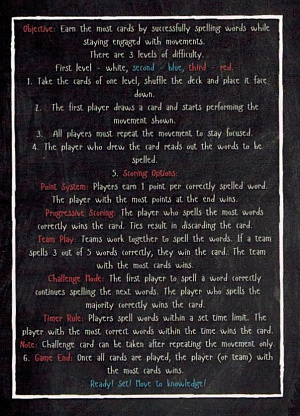 Objective: Earn the most cards by successfully spelling words while
staying engaged with movements.
There are 3 levels of difficulty.
First level - white, second - blue, third - red.
1. Take the cards of one level, shuffle the deck and place it face
down.
2. The first player draws a card and starts performing the
movement shown.
3. All players must repeat the movement to stay focused.
4. The player who drew the card reads out the words to be
spelled.
5. Scoring Options:
Point System: Players earn 1 point per correctly spelled word.
The player with the most points at the end wins.
Progressive Scoring: The player who spells the most words
correctly wins the card. Ties result in discarding the card.
Team Play: Teams work together to spell the words. If a team
spells 3 out of 5 words correctly, they win the card. The team
with the most cards wins.
Challenge Mode: The first player to spell a word correctly
continues spelling the next words. The player who spells the
majority correctly wins the card.
Timer Rule: Players spell words within a set time limit. The
player with the most correct words within the time wins the card.
Note: Challenge card can be taken after repeating the movement only.
6. Game End: Once all cards are played, the player (or team) with
the most cards wins.
Ready! Set! Move to knowledge!